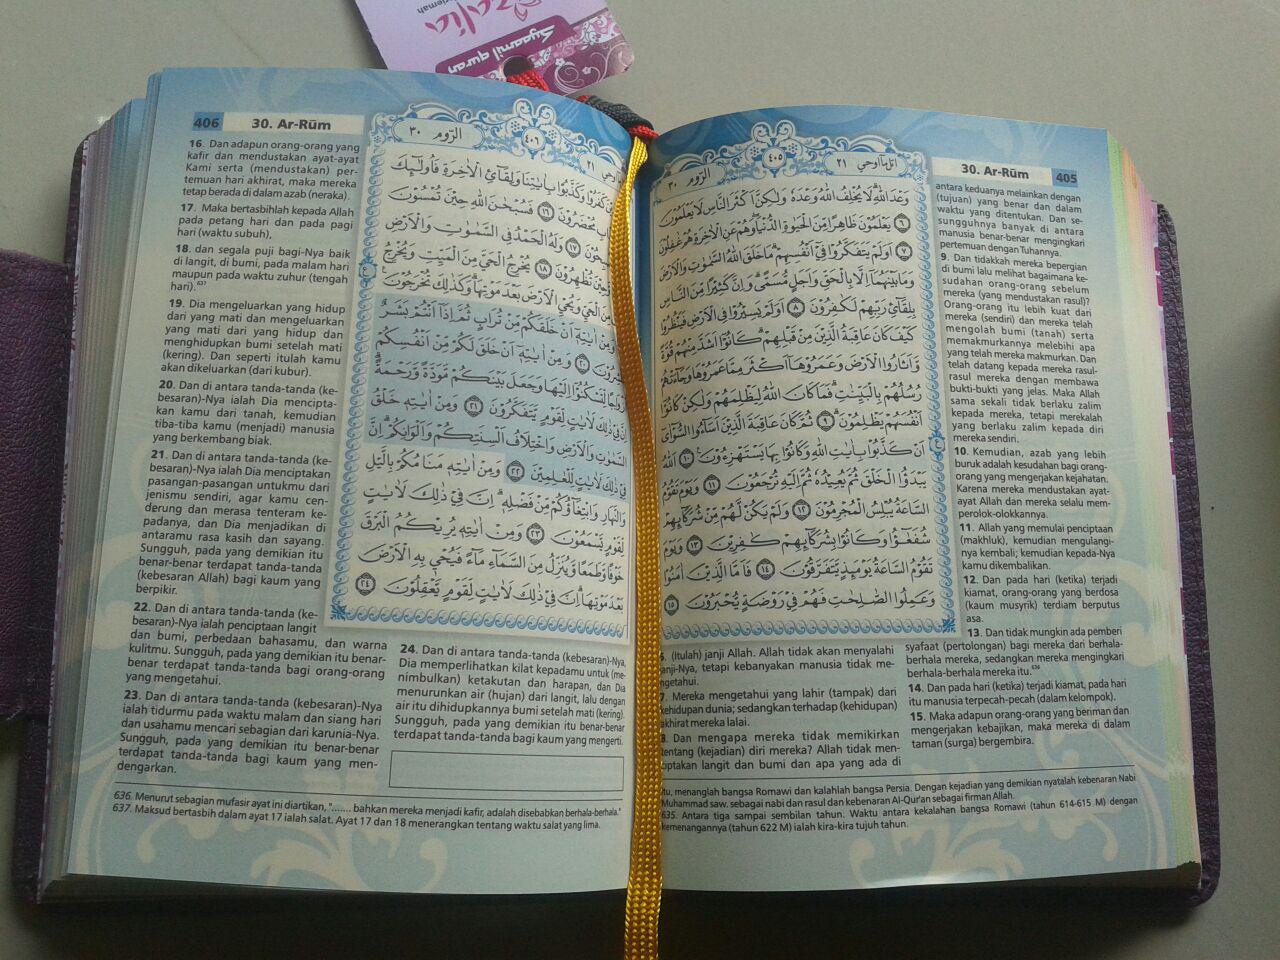 Syaamil quran
406
30. Ar-Rūm
16. Dan adapun orang-orang yang
kafir dan mendustakan ayat-ayat
Kami serta (mendustakan) per-
temuan hari akhirat, maka mereka
tetap berada di dalam azab (neraka).
17. Maka bertasbihlah kepada Allah
pada petang hari dan pada pagi
hari (waktu subuh),
18. dan segala puji bagi-Nya baik
di langit, di bumi, pada malam hari
maupun pada waktu zuhur (tengah
hari).⁶³⁷
19. Dia mengeluarkan yang hidup
dari yang mati dan mengeluarkan
yang mati dari yang hidup dan
menghidupkan bumi setelah mati
(kering). Dan seperti itulah kamu
akan dikeluarkan (dari kubur).
20. Dan di antara tanda-tanda (ke-
besaran)-Nya ialah Dia mencipta-
kan kamu dari tanah, kemudian
tiba-tiba kamu (menjadi) manusia
yang berkembang biak.
21. Dan di antara tanda-tanda (ke-
besaran)-Nya ialah Dia menciptakan
pasangan-pasangan untukmu dari
jenismu sendiri, agar kamu cen-
derung dan merasa tenteram ke-
padanya, dan Dia menjadikan di
antaramu rasa kasih dan sayang.
Sungguh, pada yang demikian itu
benar-benar terdapat tanda-tanda
(kebesaran Allah) bagi kaum yang
berpikir.
22. Dan di antara tanda-tanda (ke-
besaran)-Nya ialah penciptaan langit
dan bumi, perbedaan bahasamu, dan warna
kulitmu. Sungguh, pada yang demikian itu benar-
benar terdapat tanda-tanda bagi orang-orang
yang mengetahui.
23. Dan di antara tanda-tanda (kebesaran)-Nya
ialah tidurmu pada waktu malam dan siang hari
dan usahamu mencari sebagian dari karunia-Nya.
Sungguh, pada yang demikian itu benar-benar
terdapat tanda-tanda bagi kaum yang men-
dengarkan.
الرّوم ٣٠
٤٠٦
٢١
كَفَرُوْا وَكَذَّبُوْا بِاٰيٰتِنَا وَلِقَاۤئِ الْاٰخِرَةِ فَاُولٰۤىِٕكَ
مُحْضَرُوْنَ ١٦ فَسُبْحٰنَ اللّٰهِ حِيْنَ تُمْسُوْنَ
١٧ وَلَهُ الْحَمْدُ فِى السَّمٰوٰتِ وَالْاَرْضِ
تُظْهِرُوْنَ ١٨ يُخْرِجُ الْحَيَّ مِنَ الْمَيِّتِ وَيُخْرِجُ
مِنَ الْحَيِّ وَيُحْيِ الْاَرْضَ بَعْدَ مَوْتِهَا ۗ وَكَذٰلِكَ تُخْرَجُوْنَ
وَمِنْ اٰيٰتِهٖٓ اَنْ خَلَقَكُمْ مِّنْ تُرَابٍ ثُمَّ اِذَآ اَنْتُمْ بَشَرٌ
٢٠ وَمِنْ اٰيٰتِهٖٓ اَنْ خَلَقَ لَكُمْ مِّنْ اَنْفُسِكُمْ
لِّتَسْكُنُوْٓا اِلَيْهَا وَجَعَلَ بَيْنَكُمْ مَّوَدَّةً وَّرَحْمَةً ۗ
اِنَّ فِيْ ذٰلِكَ لَاٰيٰتٍ لِّقَوْمٍ يَّتَفَكَّرُوْنَ ٢١ وَمِنْ اٰيٰتِهٖ خَلْقُ
السَّمٰوٰتِ وَالْاَرْضِ وَاخْتِلَافُ اَلْسِنَتِكُمْ وَاَلْوَانِكُمْ ۗ اِنَّ
فِيْ ذٰلِكَ لَاٰيٰتٍ لِّلْعٰلِمِيْنَ ٢٢ وَمِنْ اٰيٰتِهٖ مَنَامُكُمْ بِالَّيْلِ
وَالنَّهَارِ وَابْتِغَاۤؤُكُمْ مِّنْ فَضْلِهٖ ۗ اِنَّ فِيْ ذٰلِكَ لَاٰيٰتٍ
لِّقَوْمٍ يَّسْمَعُوْنَ ٢٣ وَمِنْ اٰيٰتِهٖ يُرِيْكُمُ الْبَرْقَ
خَوْفًا وَّطَمَعًا وَّيُنَزِّلُ مِنَ السَّمَاۤءِ مَاۤءً فَيُحْيٖ بِهِ الْاَرْضَ
بَعْدَ مَوْتِهَا ۗ اِنَّ فِيْ ذٰلِكَ لَاٰيٰتٍ لِّقَوْمٍ يَّعْقِلُوْنَ ٢٤
24. Dan di antara tanda-tanda (kebesaran)-Nya,
Dia memperlihatkan kilat kepadamu untuk (me-
nimbulkan) ketakutan dan harapan, dan Dia
menurunkan air (hujan) dari langit, lalu dengan
air itu dihidupkannya bumi setelah mati (kering).
Sungguh, pada yang demikian itu benar-benar
terdapat tanda-tanda bagi kaum yang mengerti.
636. Menurut sebagian mufasir ayat ini diartikan, "....... bahkan mereka menjadi kafir, adalah disebabkan berhala-berhala."
637. Maksud bertasbih dalam ayat 17 ialah salat. Ayat 17 dan 18 menerangkan tentang waktu salat yang lima.
الرّوم ٣٠
٤٠٥
اتل مااوحي ٢١
وَعْدَ اللّٰهِ ۗ لَا يُخْلِفُ اللّٰهُ وَعْدَهٗ وَلٰكِنَّ اَكْثَرَ النَّاسِ لَا يَعْلَمُوْنَ
٦ يَعْلَمُوْنَ ظَاهِرًا مِّنَ الْحَيٰوةِ الدُّنْيَا ۖ وَهُمْ عَنِ الْاٰخِرَةِ هُمْ غٰفِلُوْنَ
٧ اَوَلَمْ يَتَفَكَّرُوْا فِيْٓ اَنْفُسِهِمْ ۗ مَا خَلَقَ اللّٰهُ السَّمٰوٰتِ وَالْاَرْضَ
وَمَا بَيْنَهُمَآ اِلَّا بِالْحَقِّ وَاَجَلٍ مُّسَمًّى ۗ وَاِنَّ كَثِيْرًا مِّنَ النَّاسِ
بِلِقَاۤئِ رَبِّهِمْ لَكٰفِرُوْنَ ٨ اَوَلَمْ يَسِيْرُوْا فِى الْاَرْضِ فَيَنْظُرُوْا
كَيْفَ كَانَ عَاقِبَةُ الَّذِيْنَ مِنْ قَبْلِهِمْ ۗ كَانُوْٓا اَشَدَّ مِنْهُمْ قُوَّةً
وَّاَثَارُوا الْاَرْضَ وَعَمَرُوْهَآ اَكْثَرَ مِمَّا عَمَرُوْهَا وَجَاۤءَتْهُمْ
رُسُلُهُمْ بِالْبَيِّنٰتِ ۗ فَمَا كَانَ اللّٰهُ لِيَظْلِمَهُمْ وَلٰكِنْ كَانُوْٓا
اَنْفُسَهُمْ يَظْلِمُوْنَ ٩ ثُمَّ كَانَ عَاقِبَةَ الَّذِيْنَ اَسَاۤءُوا السُّوْۤاٰىٓ
اَنْ كَذَّبُوْا بِاٰيٰتِ اللّٰهِ وَكَانُوْا بِهَا يَسْتَهْزِءُوْنَ ١٠ اَللّٰهُ
يَبْدَؤُا الْخَلْقَ ثُمَّ يُعِيْدُهٗ ثُمَّ اِلَيْهِ تُرْجَعُوْنَ ١١ وَيَوْمَ تَقُوْمُ
السَّاعَةُ يُبْلِسُ الْمُجْرِمُوْنَ ١٢ وَلَمْ يَكُنْ لَّهُمْ مِّنْ شُرَكَاۤىِٕهِمْ
شُفَعٰۤؤُا وَكَانُوْا بِشُرَكَاۤىِٕهِمْ كٰفِرِيْنَ ١٣ وَيَوْمَ
تَقُوْمُ السَّاعَةُ يَوْمَىِٕذٍ يَّتَفَرَّقُوْنَ ١٤ فَاَمَّا الَّذِيْنَ اٰمَنُوْا
وَعَمِلُوا الصّٰلِحٰتِ فَهُمْ فِيْ رَوْضَةٍ يُّحْبَرُوْنَ ١٥
6. (Itulah) janji Allah. Allah tidak akan menyalahi
janji-Nya, tetapi kebanyakan manusia tidak me-
ngetahui.
7. Mereka mengetahui yang lahir (tampak) dari
kehidupan dunia; sedangkan terhadap (kehidupan)
akhirat mereka lalai.
8. Dan mengapa mereka tidak memikirkan
tentang (kejadian) diri mereka? Allah tidak men-
ciptakan langit dan bumi dan apa yang ada di
30. Ar-Rūm
405
antara keduanya melainkan dengan
(tujuan) yang benar dan dalam
waktu yang ditentukan. Dan se-
sungguhnya banyak di antara
manusia benar-benar mengingkari
pertemuan dengan Tuhannya.
9. Dan tidakkah mereka bepergian
di bumi lalu melihat bagaimana ke-
sudahan orang-orang sebelum
mereka (yang mendustakan rasul)?
Orang-orang itu lebih kuat dari
mereka (sendiri) dan mereka telah
mengolah bumi (tanah) serta
memakmurkannya melebihi apa
yang telah mereka makmurkan. Dan
telah datang kepada mereka rasul-
rasul mereka dengan membawa
bukti-bukti yang jelas. Maka Allah
sama sekali tidak berlaku zalim
kepada mereka, tetapi merekalah
yang berlaku zalim kepada diri
mereka sendiri.
10. Kemudian, azab yang lebih
buruk adalah kesudahan bagi orang-
orang yang mengerjakan kejahatan.
Karena mereka mendustakan ayat-
ayat Allah dan mereka selalu mem-
perolok-olokkannya.
11. Allah yang memulai penciptaan
(makhluk), kemudian mengulangi-
nya kembali; kemudian kepada-Nya
kamu dikembalikan.
12. Dan pada hari (ketika) terjadi
kiamat, orang-orang yang berdosa
(kaum musyrik) terdiam berputus
asa.
13. Dan tidak mungkin ada pemberi
syafaat (pertolongan) bagi mereka dari berhala-
berhala mereka, sedangkan mereka mengingkari
berhala-berhala mereka itu.⁶³⁶
14. Dan pada hari (ketika) terjadi kiamat, pada hari
itu manusia terpecah-pecah (dalam kelompok).
15. Maka adapun orang-orang yang beriman dan
mengerjakan kebajikan, maka mereka di dalam
taman (surga) bergembira.
itu, menanglah bangsa Romawi dan kalahlah bangsa Persia. Dengan kejadian yang demikian nyatalah kebenaran Nabi
Muhammad saw. sebagai nabi dan rasul dan kebenaran Al-Qur'an sebagai firman Allah.
635. Antara tiga sampai sembilan tahun. Waktu antara kekalahan bangsa Romawi (tahun 614-615 M) dengan
kemenangannya (tahun 622 M) ialah kira-kira tujuh tahun.